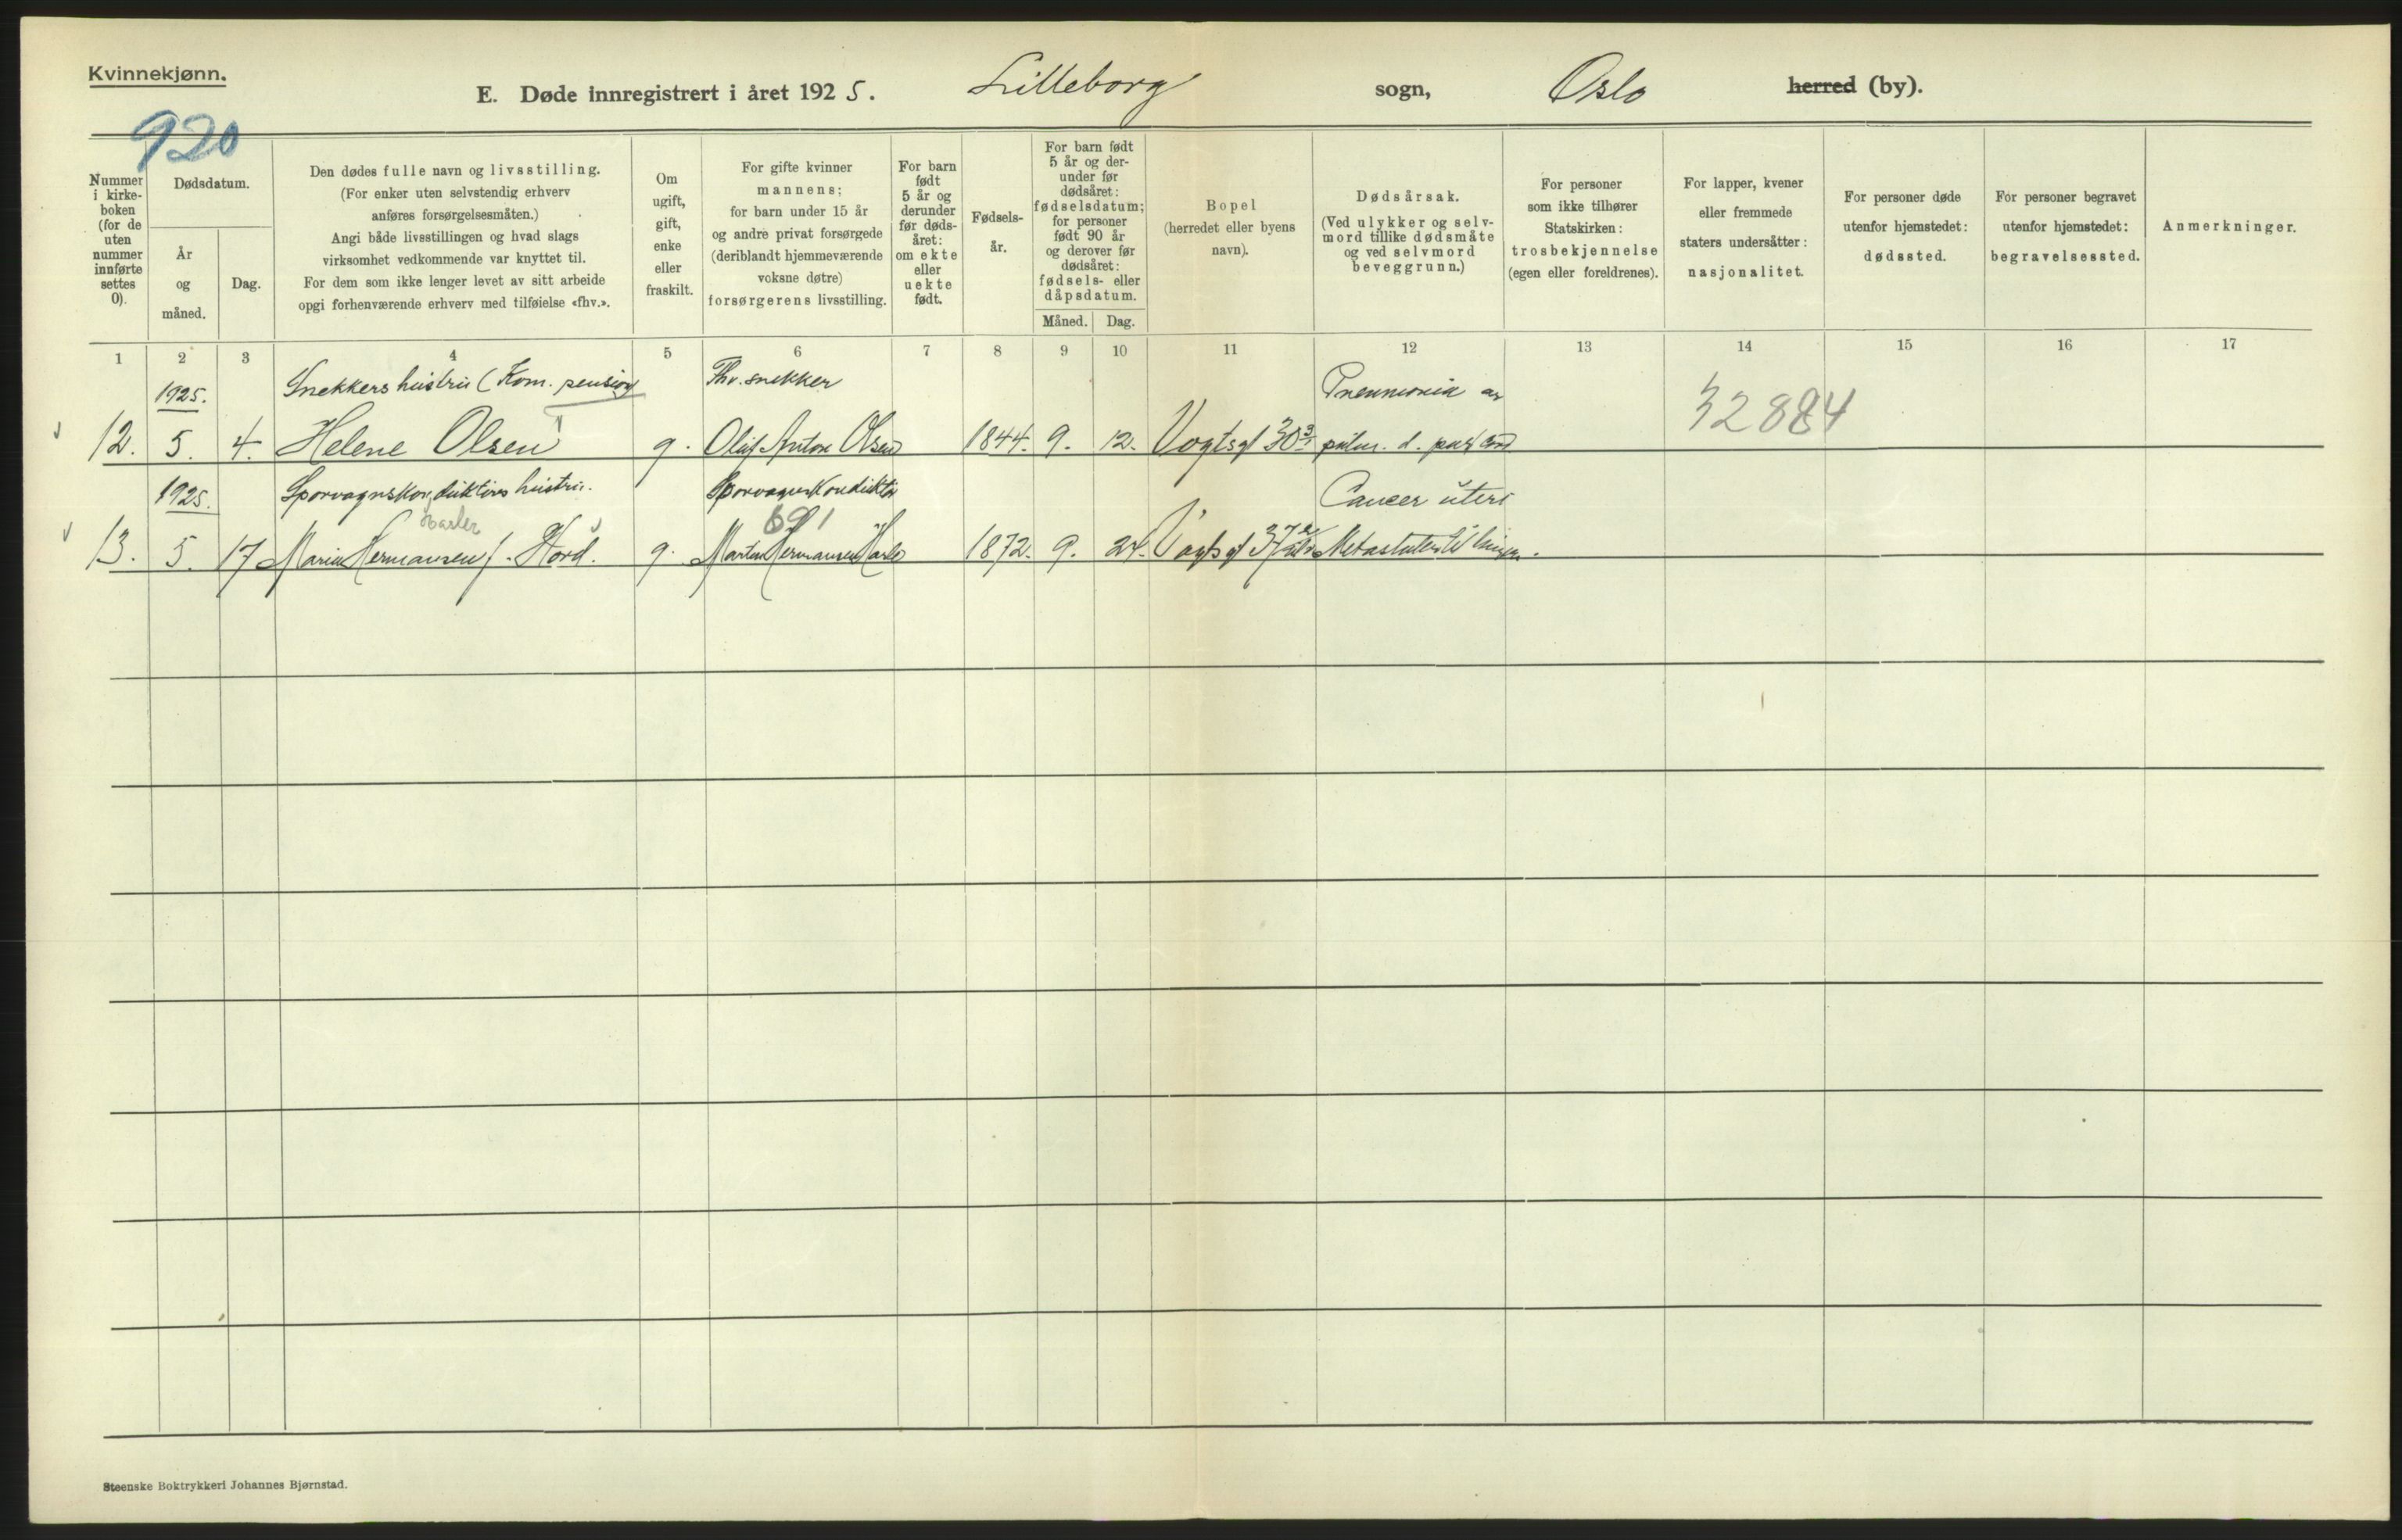 Kvinnekjønn.
E. Døde innregistrert i året 1925. Lilleborg sogn, Oslo herred (by).
920
Nummer i kirke- boken (for de uten nummer innførte settes 0).
Dødsdatum.
År og måned.
Dag.
Den dødes fulle navn og livsstilling.
(For enker uten selvstendig erhverv
anføres forsørgelsesmåten.)
Angi både livsstillingen og hvad slags
virksomhet vedkommende var knyttet til.
For dem som ikke lenger levet av sitt arbeide
opgi forhenværende erhverv med tilføielse «fhv.».
Om
ugift,
gift,
enke
eller
fraskilt.
For gifte kvinner
mannens;
for barn under 15 år
og andre privat forsørgede
(deriblandt hjemmeværende
voksne døtre)
forsørgerens livsstilling.
For barn
født
5 år og
derunder
før døds-
året:
om ekte
eller
uekte
født.
Fødsels-
år.
For barn født
5 år og der-
under før
dødsåret:
fødselsdatum;
for personer
født 90 år
og derover før
dødsåret:
fødsels- eller
dåpsdatum.
Måned. Dag.
Bopel
(herredet eller byens
navn).
Dødsårsak.
(Ved ulykker og selv-
mord tillike dødsmåte
og ved selvmord
beveggrunn.)
For personer
som ikke tilhører
Statskirken:
trosbekjennelse
(egen eller foreldrenes).
For lapper, kvener
eller fremmede
staters undersåtter:
nasjonalitet.
For personer døde
utenfor hjemstedet:
dødssted.
For personer begravet
utenfor hjemstedet:
begravelsessted.
Anmerkninger.
1 2 3 4 5 6 7 8 9 10 11 12 13 14 15 16 17
1925. Snekkers hustru (Kom. pension) Fhv. snekker Pneumonia 32884
12. 5. 4. Helene Olsen g. Oluf Anton Olsen 1844. 9. 12. Vogtsgt 30
1925. Sporvognskonduktørs hustru. Sporvognskonduktør Cancer uteri
13. 5. 17 Maria Hermansen f. Hord. g. Martin Hermansen 1872. 9. 24. Vogtsgt 37
691
Steenske Boktrykkeri Johannes Bjørnstad.